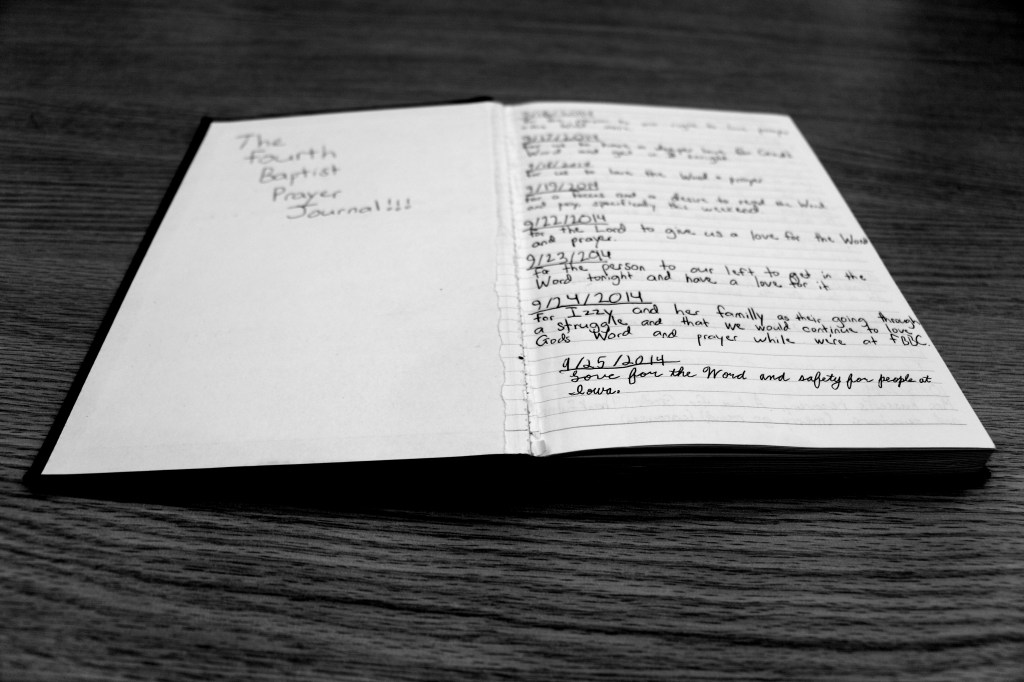 The
Fourth
Baptist
Prayer
Journal!!!
9/17/2014
for us to have a deeper love for God's
Word and get in it tonight
9/18/2014
for us to love the Word + prayer
9/19/2014
for a focus and a desire to read the Word
and pray specifically this weekend
9/22/2014
for the Lord to give us a love for the Word
and prayer.
9/23/2014
for the person to our left, to get in the
Word tonight and have a love for it
9/24/2014
for Izzy and her familly as their going through
a struggle and that we would continue to love
Gods Word and prayer while we're at FBBC.
9/25/2014
Love for the Word and safety for people at
Iowa.